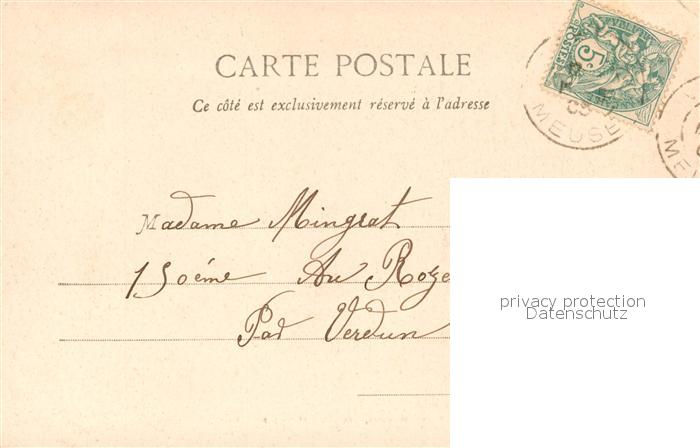 CARTE POSTALE
Ce côté est exclusivement réservé à l'adresse
POSTES
5c
MEUSE
Madame Mingrat
150éme Au Roze
Par Verdun
privacy protection
Datenschutz